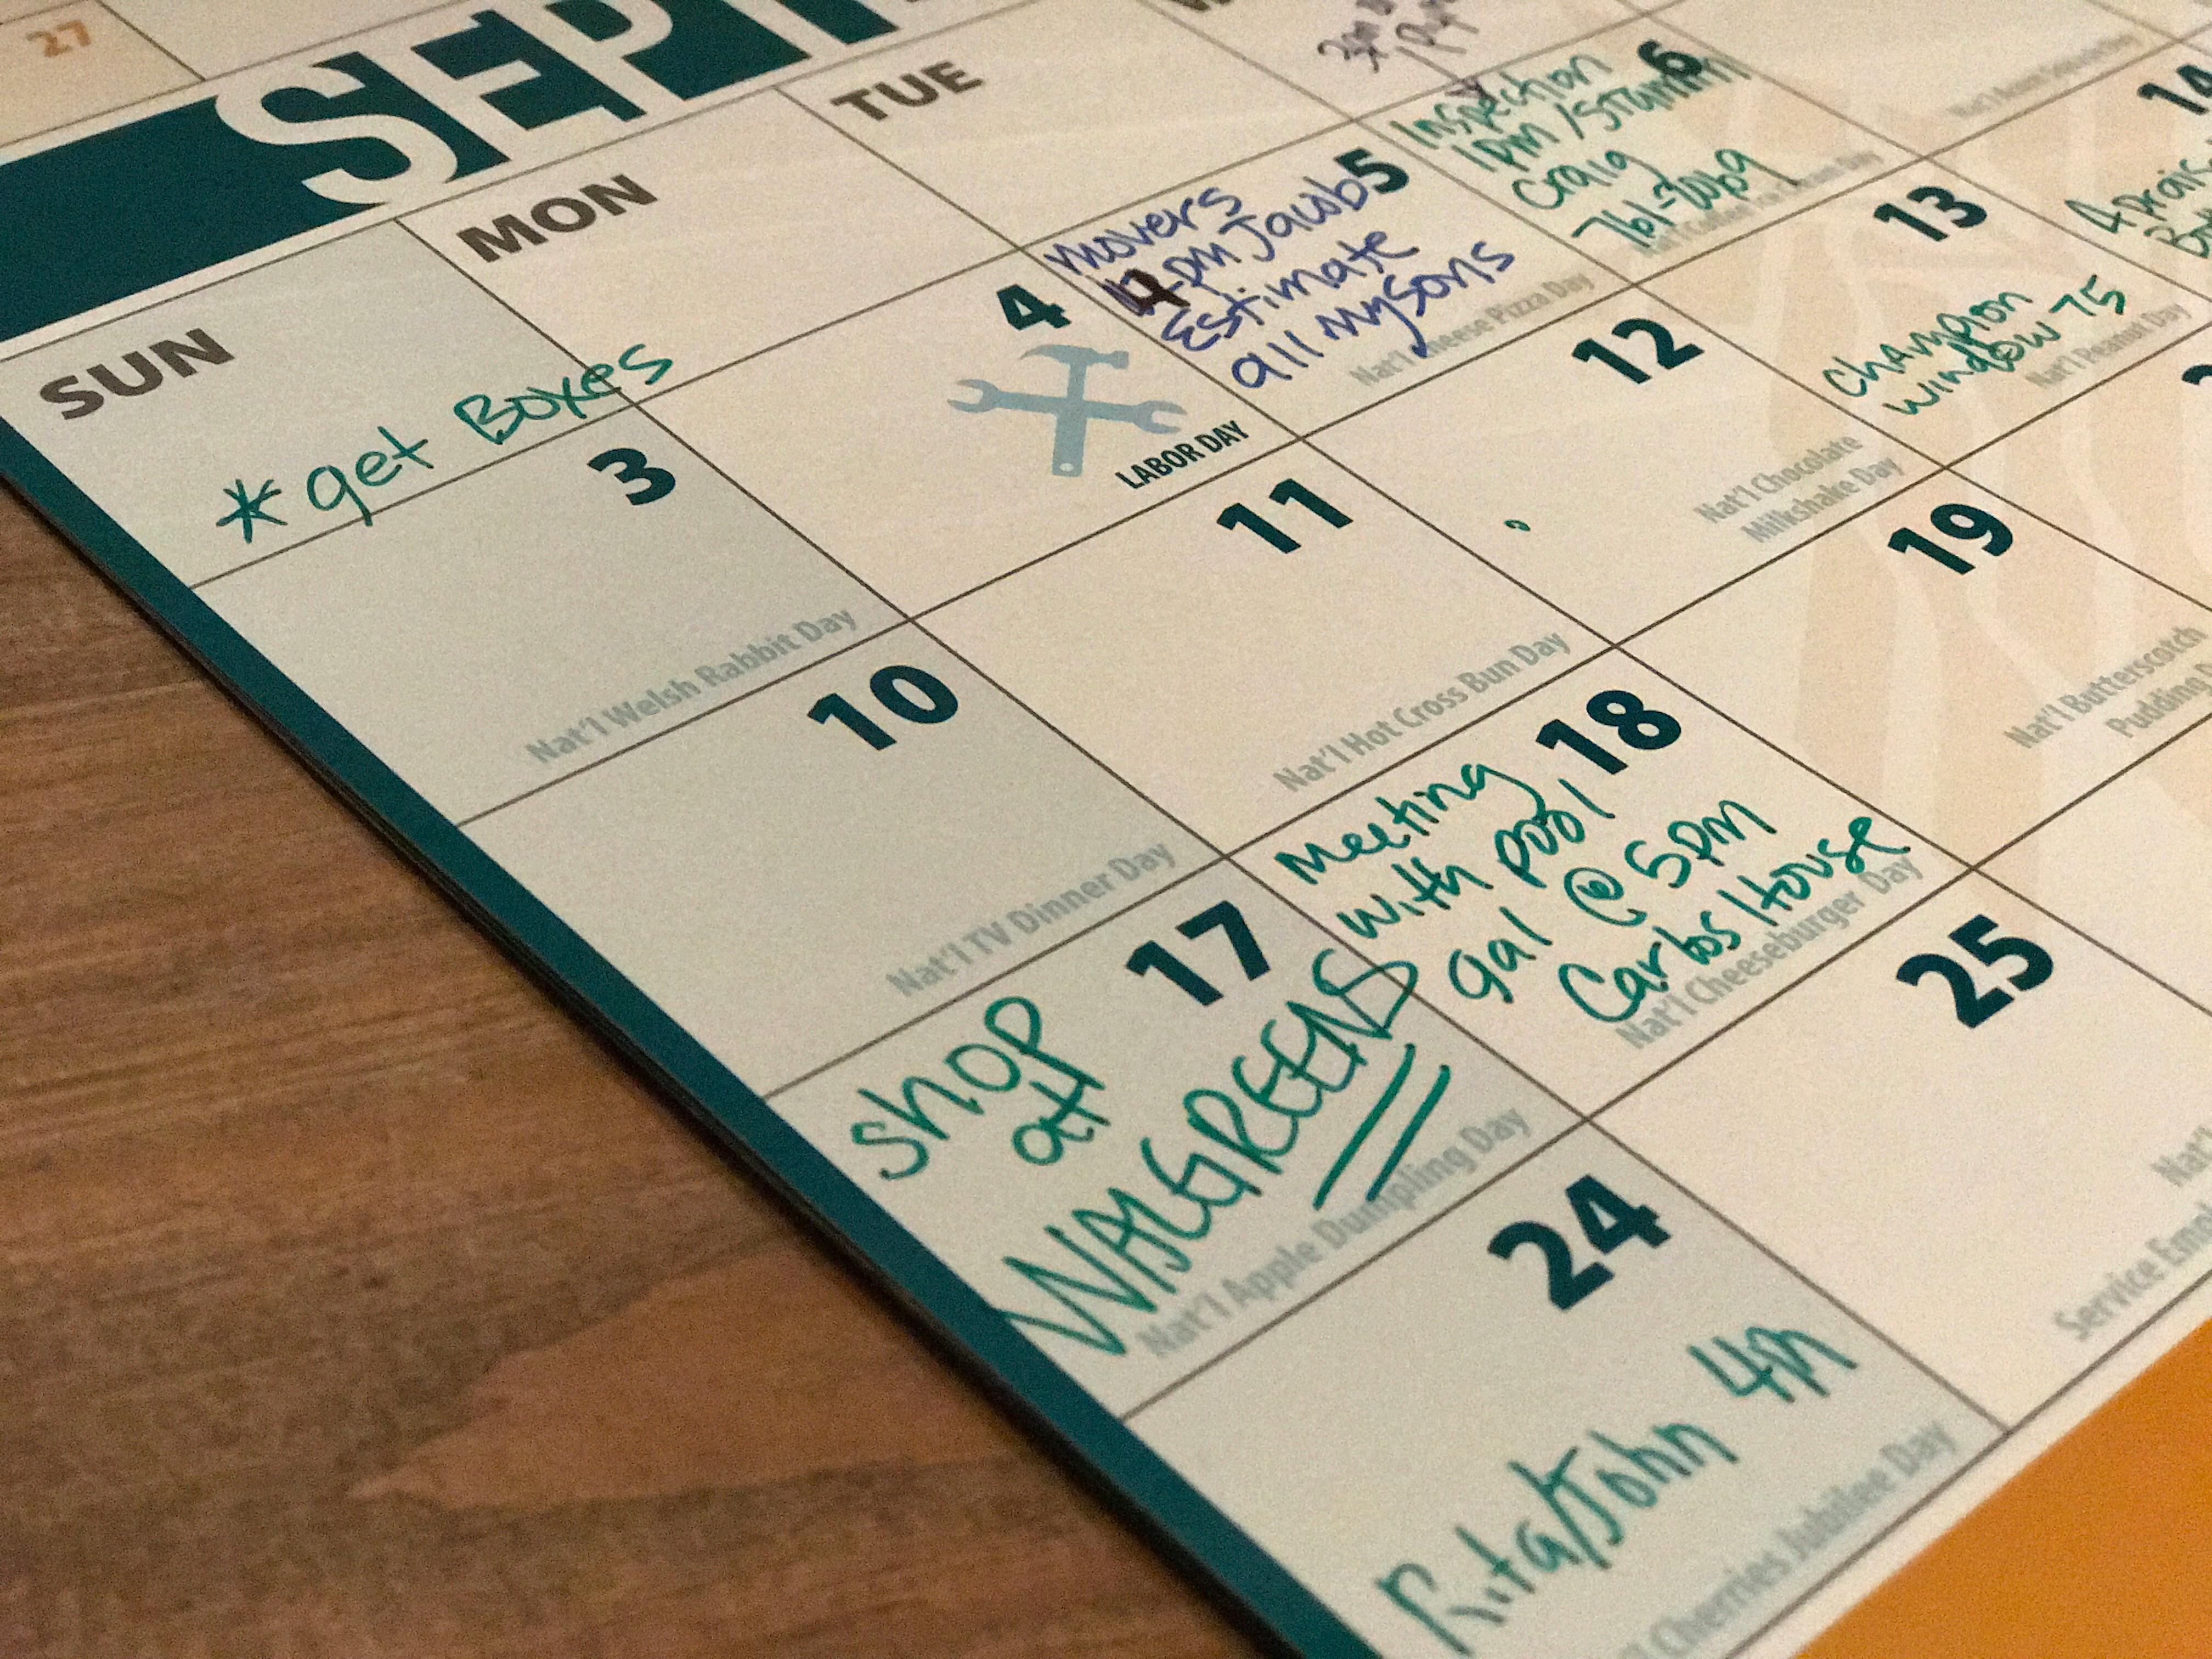 27
SEPT
SUN
MON
TUE
* get Boxes
3
Nat'l Welsh Rabbit Day
4
LABOR DAY
5
movers
4 pm Jacob
Estimate
all my sons
Nat'l Cheese Pizza Day
6
Inspection
1pm /
Craig
761-
10
Nat'l TV Dinner Day
11
Nat'l Hot Cross Bun Day
12
Nat'l Chocolate
Milkshake Day
13
Champion
window 75
Nat'l Peanut Day
14
17
shop
at
WALGREENS
Nat'l Apple Dumpling Day
18
Meeting
with pool
gal @ 5pm
Carlos House
Nat'l Cheeseburger Day
19
Nat'l Butterscotch
Pudding D
24
Rita/John 4PM
Cherries Jubilee Day
25
Nat'l
Service Empl